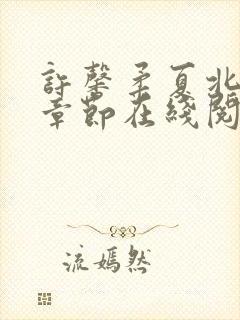 許馨柔夏北
章節在綫閱
流嫣然